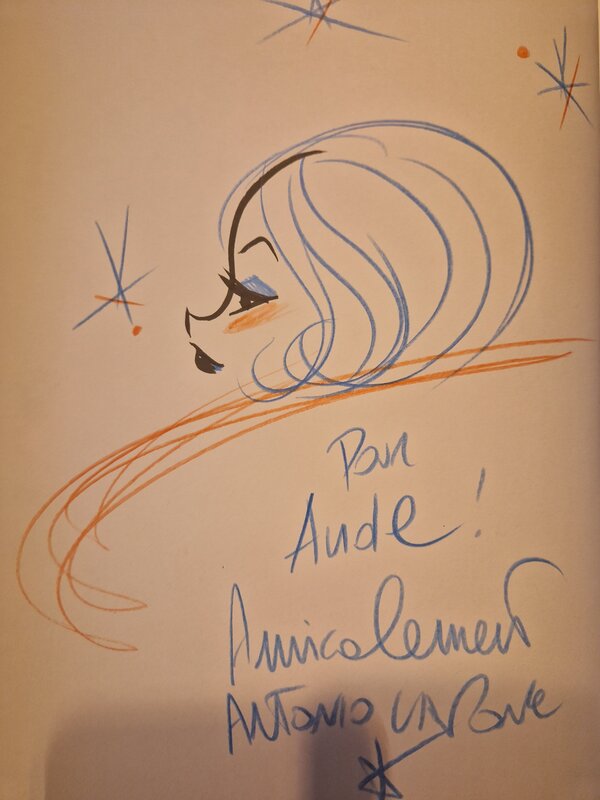 Pour
Aude !
Amicalement
ANTONIO LAPONE